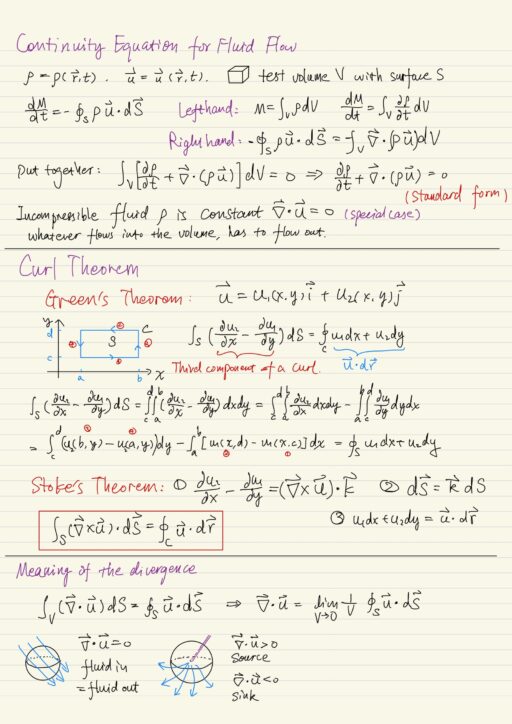 Continuity Equation for Fluid Flow
ρ = ρ(r⃗,t). u⃗ = u⃗(r⃗,t). test volume V with surface S
dM/dt = -∮_S ρu⃗·dS⃗ Lefthand: M=∫_V ρdV dM/dt = ∫_V ∂ρ/∂t dV
Righthand: -∮_S ρu⃗·dS⃗ = -∫_V ∇⃗·(ρu⃗)dV
Put together: ∫_V [∂ρ/∂t + ∇⃗·(ρu⃗)] dV = 0 ⇒ ∂ρ/∂t + ∇⃗·(ρu⃗) = 0
(Standard form)
Incompressible fluid ρ is constant ∇⃗·u⃗ = 0 (special case)
whatever flows into the volume, has to flow out.
Curl Theorem
Green's Theorom: u⃗ = u₁(x,y)i⃗ + u₂(x,y)j⃗
y d c a b x S C ① ② ③ ④
∫_S (∂u₂/∂x - ∂u₁/∂y) dS = ∮_c u₁dx + u₂dy
Third component of a curl. u⃗·dr⃗
∫_S (∂u₂/∂x - ∂u₁/∂y) dS = ∫_c^d ∫_a^b (∂u₂/∂x - ∂u₁/∂y) dxdy = ∫_c^d ∫_a^b ∂u₂/∂x dxdy - ∫_a^b ∫_c^d ∂u₁/∂y dydx
= ∫_c^d (u₂(b,y) - u₂(a,y))dy - ∫_a^b [u₁(x,d) - u₁(x,c)] dx = ∮_S u₁dx + u₂dy
Stoke's Theorem: ① ∂u₂/∂x - ∂u₁/∂y = (∇⃗×u⃗)·k⃗ ② dS⃗ = k⃗ dS
∫_S (∇⃗×u⃗)·dS⃗ = ∮_C u⃗·dr⃗ ③ u₁dx + u₂dy = u⃗·dr⃗
Meaning of the divergence
∫_V (∇⃗·u⃗) dS = ∮_S u⃗·dS⃗ ⇒ ∇⃗·u⃗ = lim V→0 1/V ∮_S u⃗·dS⃗
∇⃗·u⃗ = 0
fluid in
= fluid out
∇⃗·u⃗ > 0
Source
∇⃗·u⃗ < 0
sink